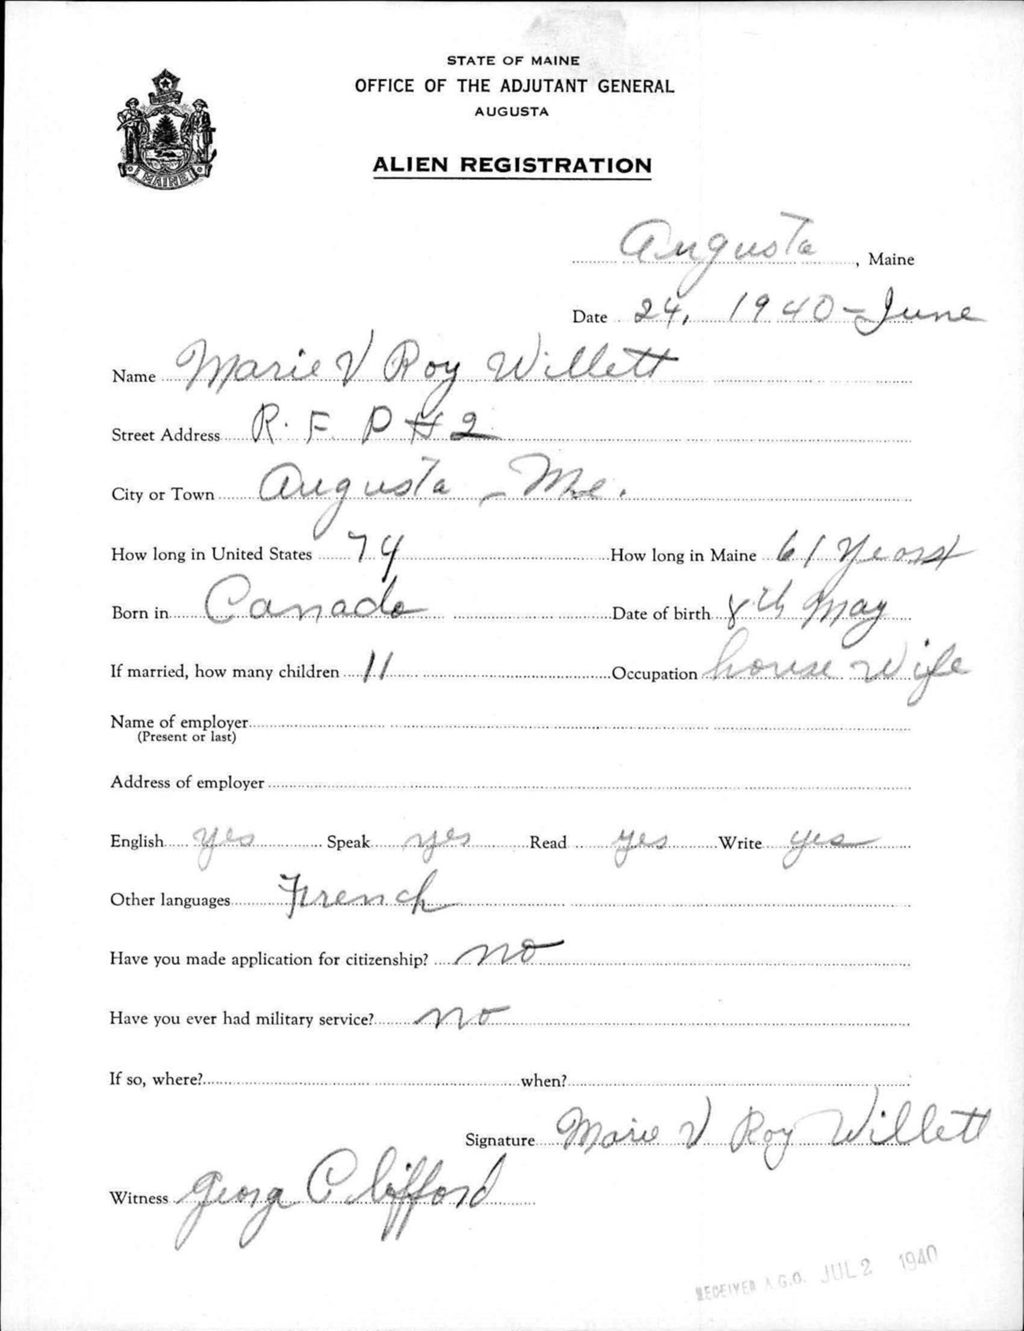 STATE OF MAINE
OFFICE OF THE ADJUTANT GENERAL
AUGUSTA
ALIEN REGISTRATION
MAINE
Augusta, Maine
Date 24, 1940 - June
Name Marie V Roy Willett
Street Address R. F. D #2
City or Town Augusta - Me.
How long in United States 74 How long in Maine 61 Years
Born in Canada Date of birth 8th May
If married, how many children 11 Occupation house wife
Name of employer
(Present or last)
Address of employer
English yes Speak yes Read yes Write yes
Other languages French
Have you made application for citizenship? no
Have you ever had military service? no
If so, where? when?
Signature Marie V Roy Willett
Witness Georg Clifford
RECEIVED A.G.O. JUL 2 1940